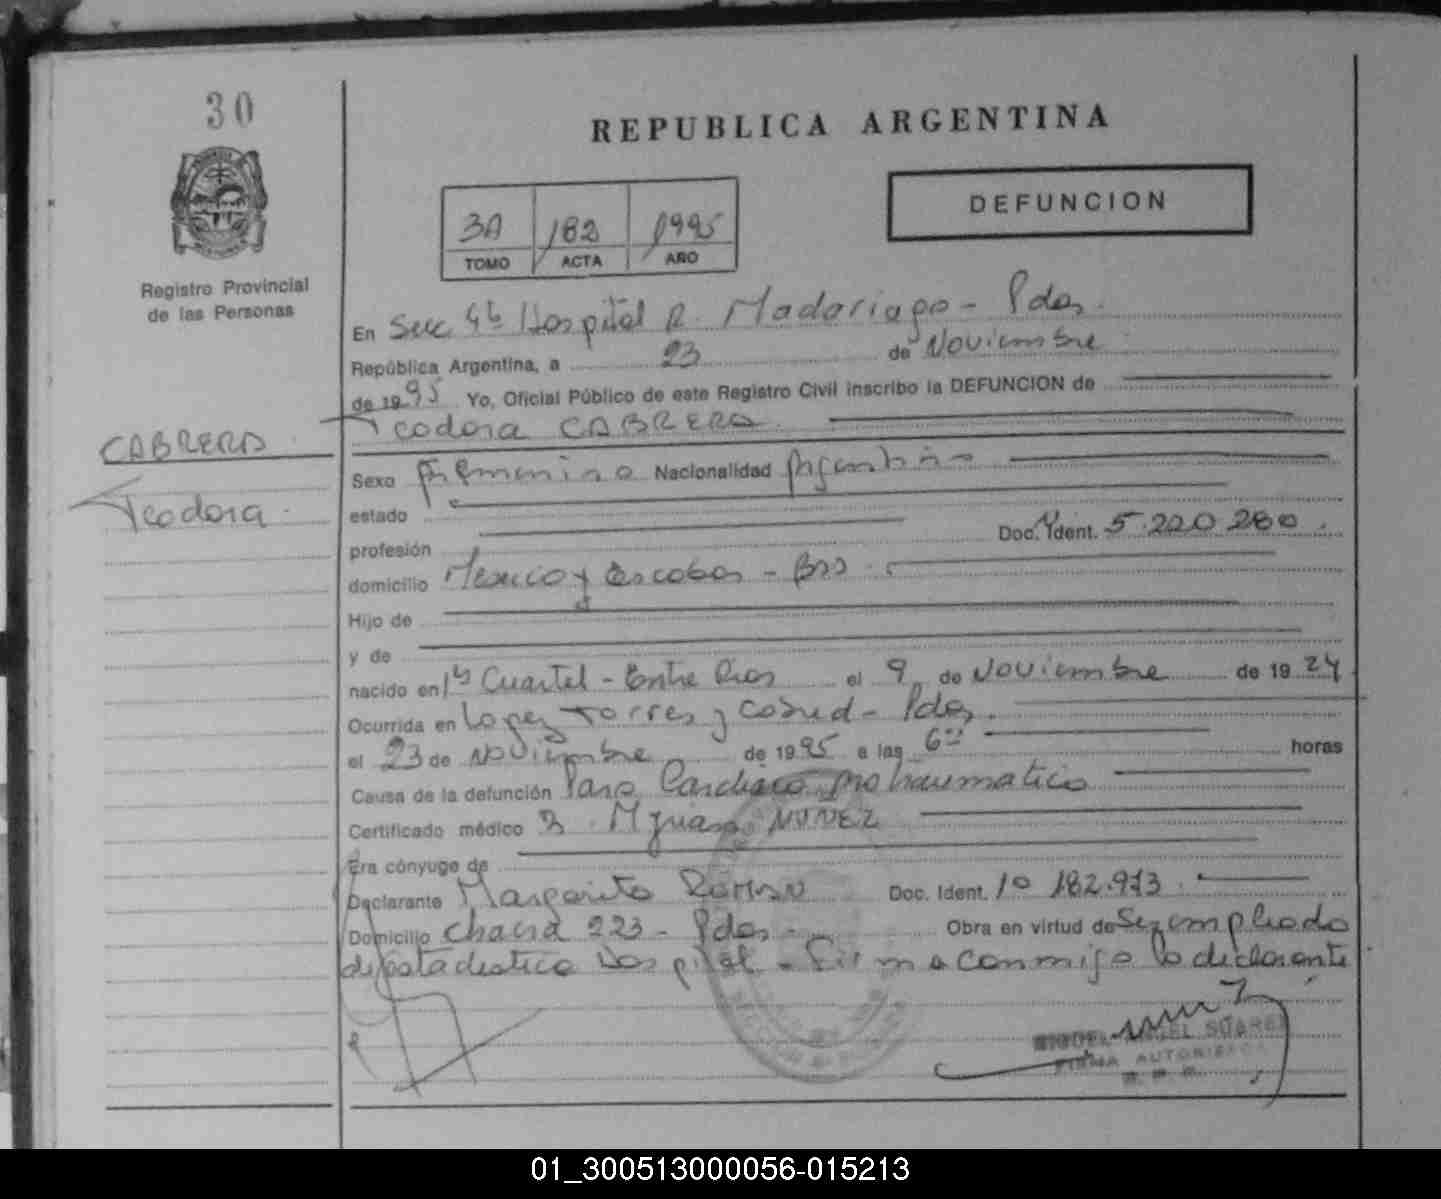 30
REPUBLICA ARGENTINA
DEFUNCION
3A 182 1995
TOMO ACTA AÑO
Registro Provincial
de las Personas
En Secc 4ta Hospital R. Madariaga - Pdas.
República Argentina, a 23 de Noviembre
de 1995 Yo, Oficial Público de este Registro Civil inscribo la DEFUNCION de
Teodora CABRERA.
CABRERA
Teodora
Sexo Femenino Nacionalidad Argentina
estado
profesión Doc. Ident. 5.220.280.
domicilio y Escobar -
Hijo de
y de
nacido en 1º Cuartel - Entre Rios el 9 de Noviembre de 1924
Ocurrida en Lopez Torres y - Pdas.
el 23 de Noviembre de 1995 a las 6 horas
Causa de la defunción Paro Cardiaco no traumatico
Certificado médico NUÑEZ
Era cónyuge de
Declarante Margarita Doc. Ident. 10 182.973.
Domicilio chacra 223 - Pdas - Obra en virtud de Ser empleado
de estadistica Hospital - Firma conmigo la declarante
MIGUEL ANGEL SUAREZ
FIRMA AUTORIZADA
01_300513000056-015213